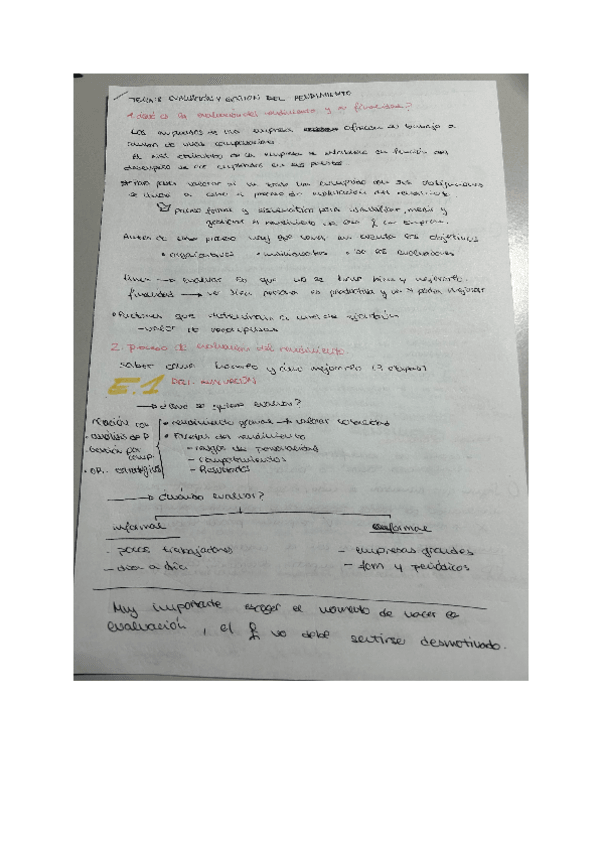 TEMA 8 EVALUACIÓN Y GESTIÓN DEL RENDIMIENTO
1. ¿Qué es la evaluación del rendimiento y su finalidad?
Los empleados de una empresa ofrecen su trabajo a
cambio de unas
El de la empresa se en función del
desempeño de los empleados en sus puestos.
para valorar si un cumplido con sus obligaciones
se lleva a cabo el proceso de evaluación del rendimiento.
proceso formal y sistemático para identificar, medir y
gestionar el rendimiento de la empresa.
Antes de este proceso hay que tener en cuenta los objetivos
• organizativos • individuales • de los evaluadores
→ evaluar lo que no se hace bien y mejorarlo.
finalidad → ver si la persona es productiva y si podría mejorar
• Factores que determinan el nivel de
- valor de recompensas
2. proceso de evaluación del rendimiento.
saber cómo hacerlo y cómo mejorarlo (3 etapas)
E.1 DEF. EVALUACIÓN
→ ¿Qué se quiere evaluar?
relación con
• análisis de P.
• Gestión por comp.
• Op. estratégicos
• rendimiento global → valorar
• Facetas del rendimiento
- rasgos de personalidad
- comportamientos
- Resultados
→ ¿Cuándo evaluar?
informal formal
- pocos trabajadores - empresas grandes
- día a día - form y periódicos
Muy importante escoger el momento de hacer la
evaluación, el no debe sentirse desmotivado.